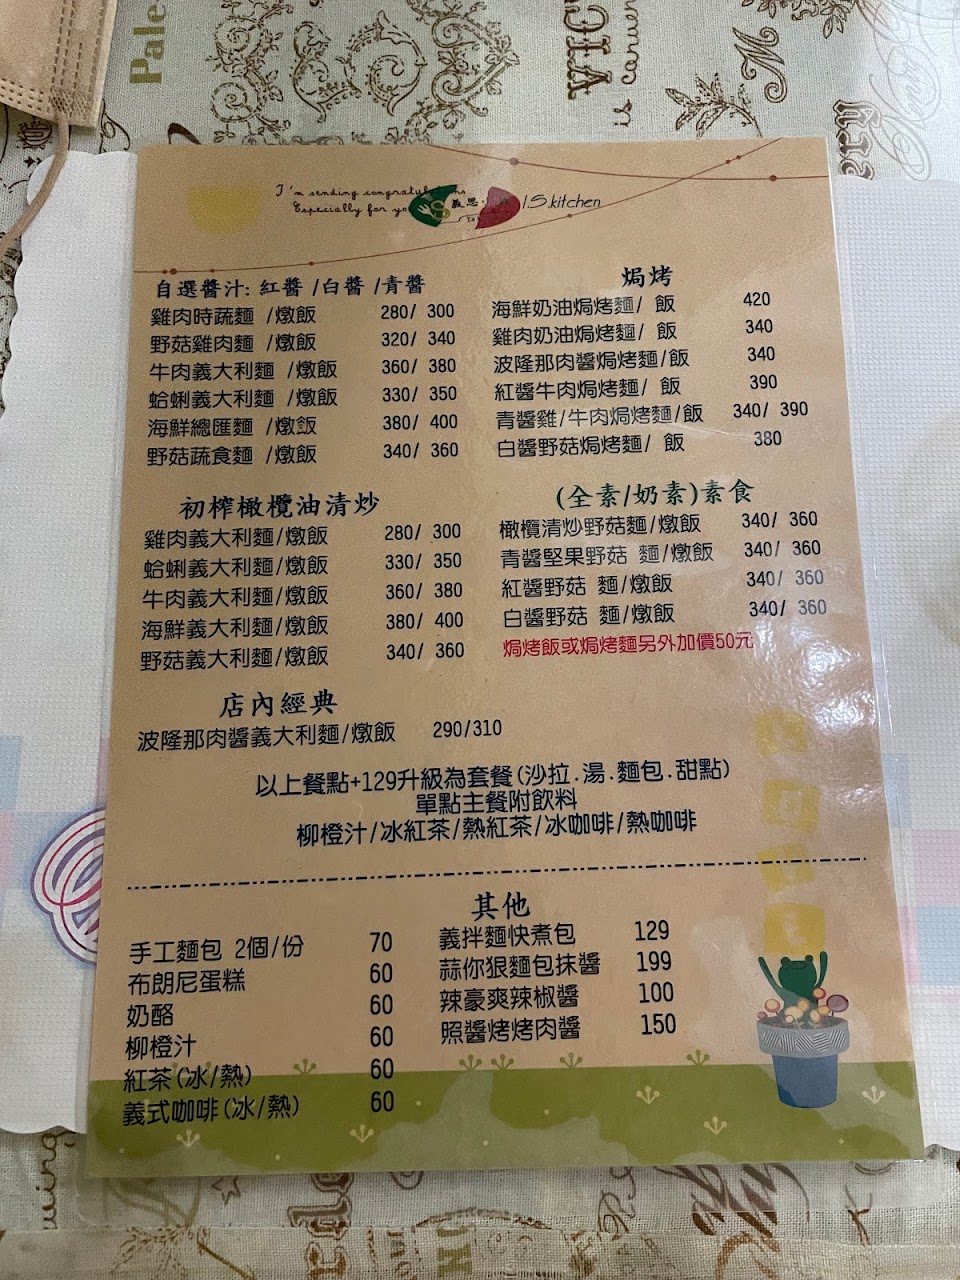 Pale
is
I'm sending congratulations
Especially for you
義思
I.S.kitchen
自選醬汁: 紅醬 /白醬 /青醬
雞肉時蔬麵 /燉飯 280/ 300
野菇雞肉麵 /燉飯 320/ 340
牛肉義大利麵 /燉飯 360/ 380
蛤蜊義大利麵 /燉飯 330/ 350
海鮮總匯麵 /燉飯 380/ 400
野菇蔬食麵 /燉飯 340/ 360
初榨橄欖油清炒
雞肉義大利麵/燉飯 280/ 300
蛤蜊義大利麵/燉飯 330/ 350
牛肉義大利麵/燉飯 360/ 380
海鮮義大利麵/燉飯 380/ 400
野菇義大利麵/燉飯 340/ 360
店內經典
波隆那肉醬義大利麵/燉飯 290/310
焗烤
海鮮奶油焗烤麵/ 飯 420
雞肉奶油焗烤麵/ 飯 340
波隆那肉醬焗烤麵/飯 340
紅醬牛肉焗烤麵/ 飯 390
青醬雞/牛肉焗烤麵/飯 340/ 390
白醬野菇焗烤麵/ 飯 380
(全素/奶素)素食
橄欖清炒野菇麵/燉飯 340/ 360
青醬堅果野菇 麵/燉飯 340/ 360
紅醬野菇 麵/燉飯 340/ 360
白醬野菇 麵/燉飯 340/ 360
焗烤飯或焗烤麵另外加價50元
以上餐點+129升級為套餐(沙拉.湯.麵包.甜點)
單點主餐附飲料
柳橙汁/冰紅茶/熱紅茶/冰咖啡/熱咖啡
其他
手工麵包 2個/份 70
布朗尼蛋糕 60
奶酪 60
柳橙汁 60
紅茶(冰/熱) 60
義式咖啡(冰/熱) 60
義拌麵快煮包 129
蒜你狠麵包抹醬 199
辣豪爽辣椒醬 100
照醬烤烤肉醬 150